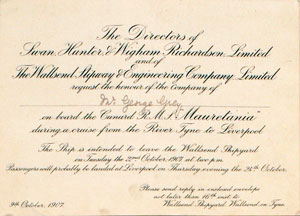 The Directors of
Swan, Hunter, & Wigham Richardson, Limited
and of
The Wallsend Slipway & Engineering Company, Limited
request the honour of the company of
Mr George Grey
on board the Cunard R.M.S. "Mauretania"
during a cruise from the River Tyne to Liverpool
The Ship is intended to leave the Wallsend Shipyard
on Tuesday the 22nd October, 1907 at two p.m.
Passengers will probably be landed at Liverpool on Thursday evening the 24th October.
Please send reply in enclosed envelope
not later than 16th inst to
Wallsend Shipyard, Wallsend on Tyne.
9th October, 1907.